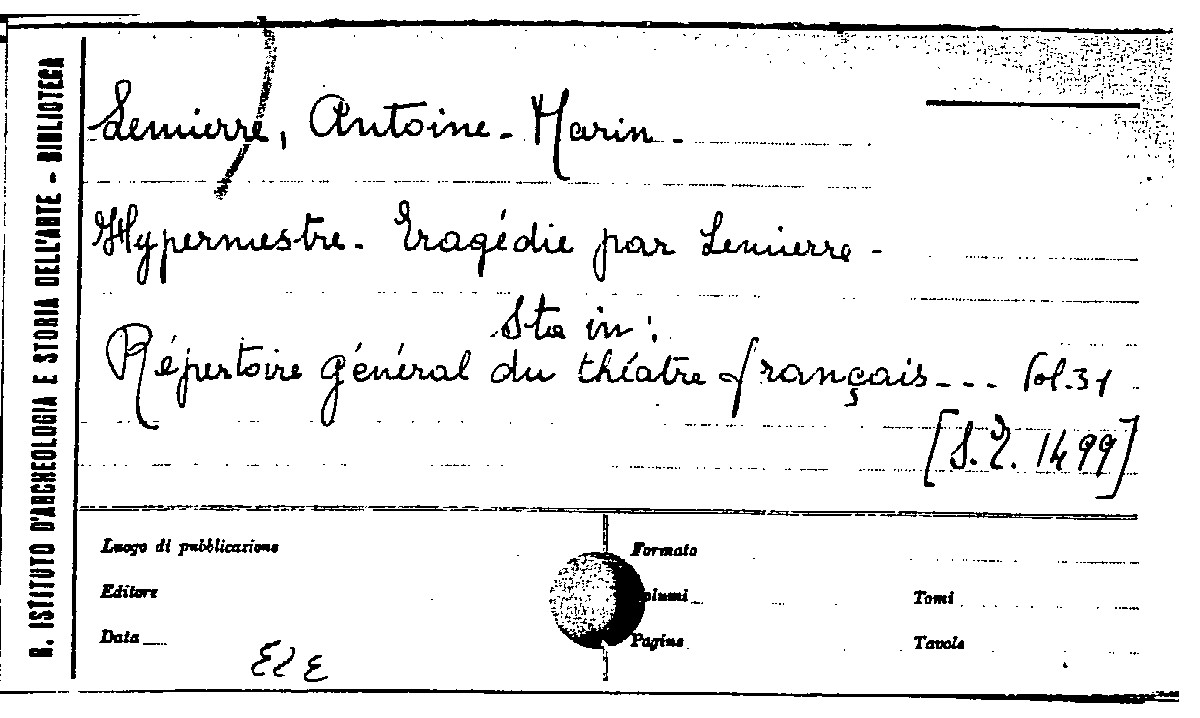 R. ISTITUTO D'ARCHEOLOGIA E STORIA DELL'ARTE - BIBLIOTECA
Lemierre, Antoine-Marin.
Hypermestre. Tragédie par Lemierre -
Sta in:
Répertoire général du théatre français --- Vol. 31
[S.T. 1499]
Luogo di pubblicazione
Formato
Editore
Volumi
Tomi
Data
Pagine
Tavole